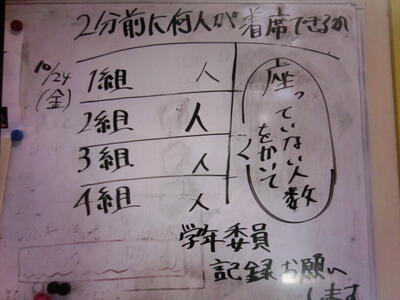 2分前に何人が着席できるか
10/24
(金)
1組 人
2組 人
3組 人
4組 人
座っていない人数
をかいて
学年委員
記録お願い
します